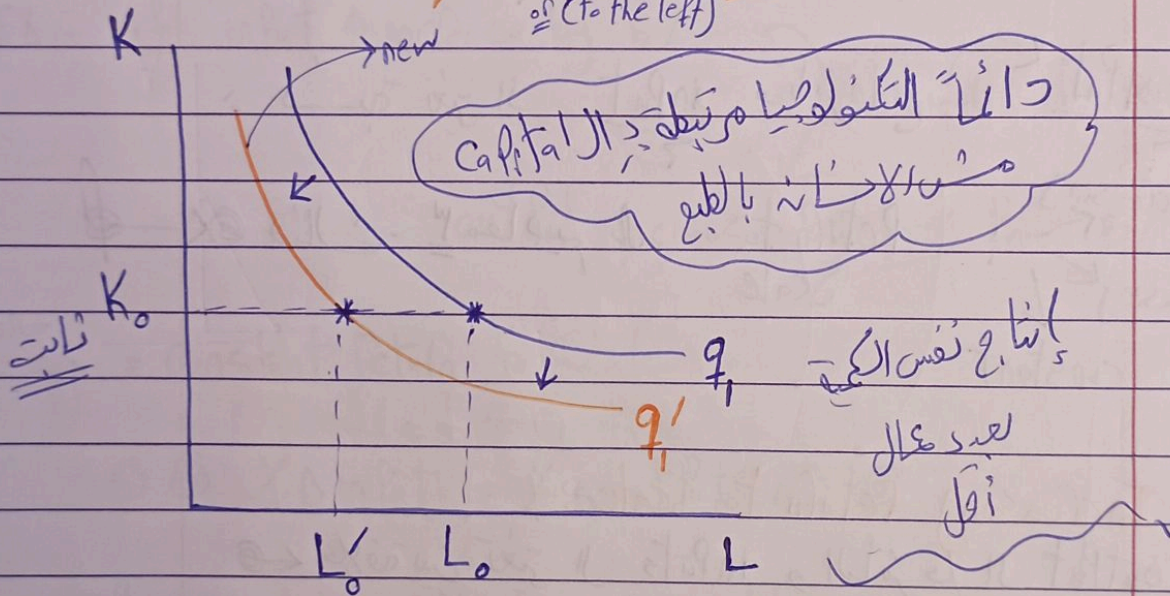 or (to the left)
K
new
دائماً التكنولوجيا مرتبطة بـ ال Capital
مش الإنسان بالطبع
K₀
ثابت
q₁
إنتاج نفس الكمية
q₁′
بعدد عمال
أقل
L₀′ L₀ L